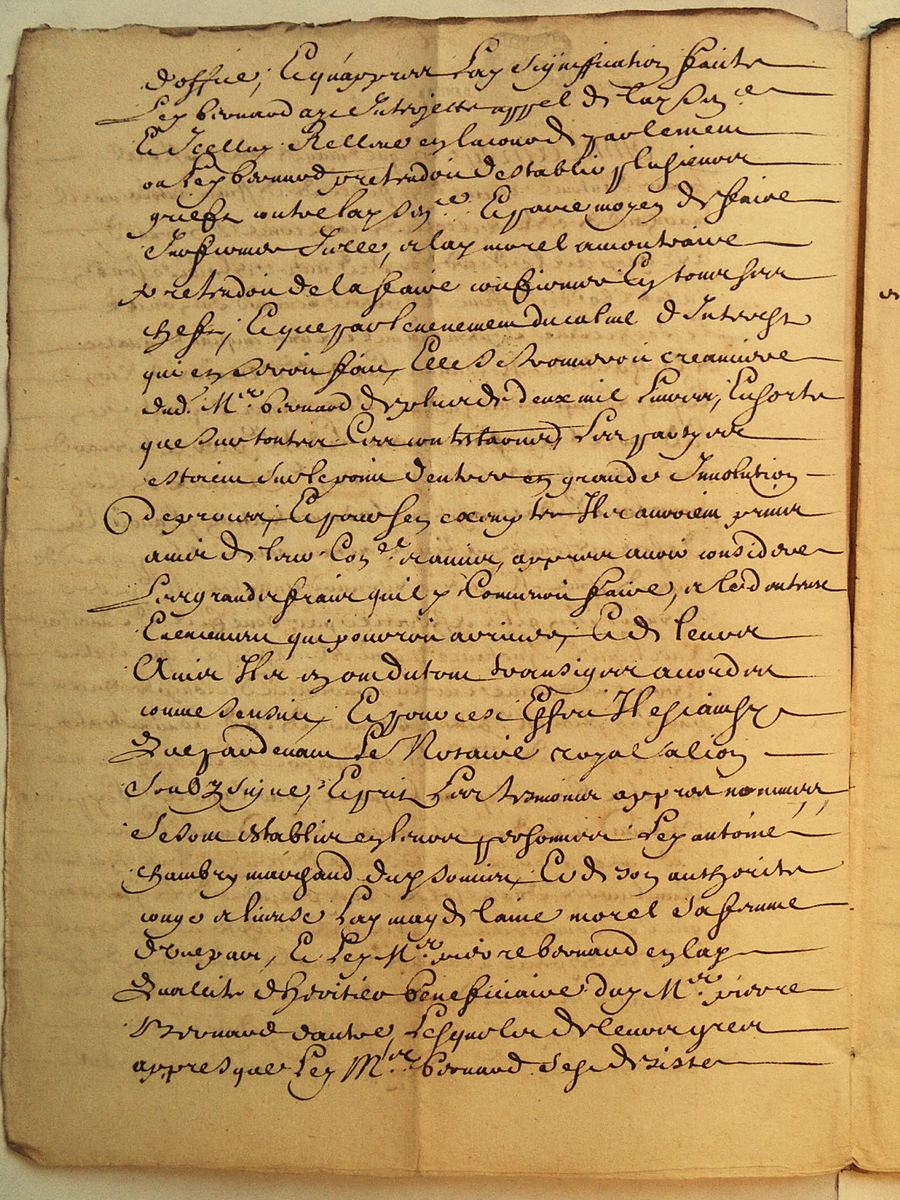 d'office, Et qu'appres lad signiffication faitte
Led bernard aye Interjette appel de lad sen.ce
Et Icelluy Relleve en la cour de parlement
ou Led bernard pretendoit d'establir plusieurs
griefs contre lad sen.ce Et par ce moyen de faire
Infirmer Icelle, et lad morel au contraire
pretendoit de la faire confirmer En tous ses
chefs, Et que par l'evenement du calcul d'Interest
qui en seroit fait, Elle se trouveroit creantiere
dud. M.re bernard de plus de deux mil Livres, En sorte
que sur toutes Ces contestations Les partyes
estoient sur le point d'entrer en grande Involution
de proces, Et pour s'en exempter Ils auroient prins
advis de leur Con.el et amis, appres avoir considere
Les grands fraix qu'il y Conviendroit faire, et le doubteux
Evenement qui pourroit arriver, Et de leurs
Amis Ils en ont du tout transiger accorder
comme s'ensuit, Et pour cest Effet Ils e
Que pardevant Le Notaire royal
Soubzsigne, Et puis Les tesmoins appres nommes
Se sont establis en leurs personnes Led antoine
chambry marchand dud Et de son authorite
conge et license Lad magdelaine morel sa femme
d'une part, Et Led M.re pierre bernard en lad
Qualite d'heritier beneficiaire dud M.re pierre
Bernard d'autre, Lesquels de leurs gres
appres que Led M.re bernard s'est desiste